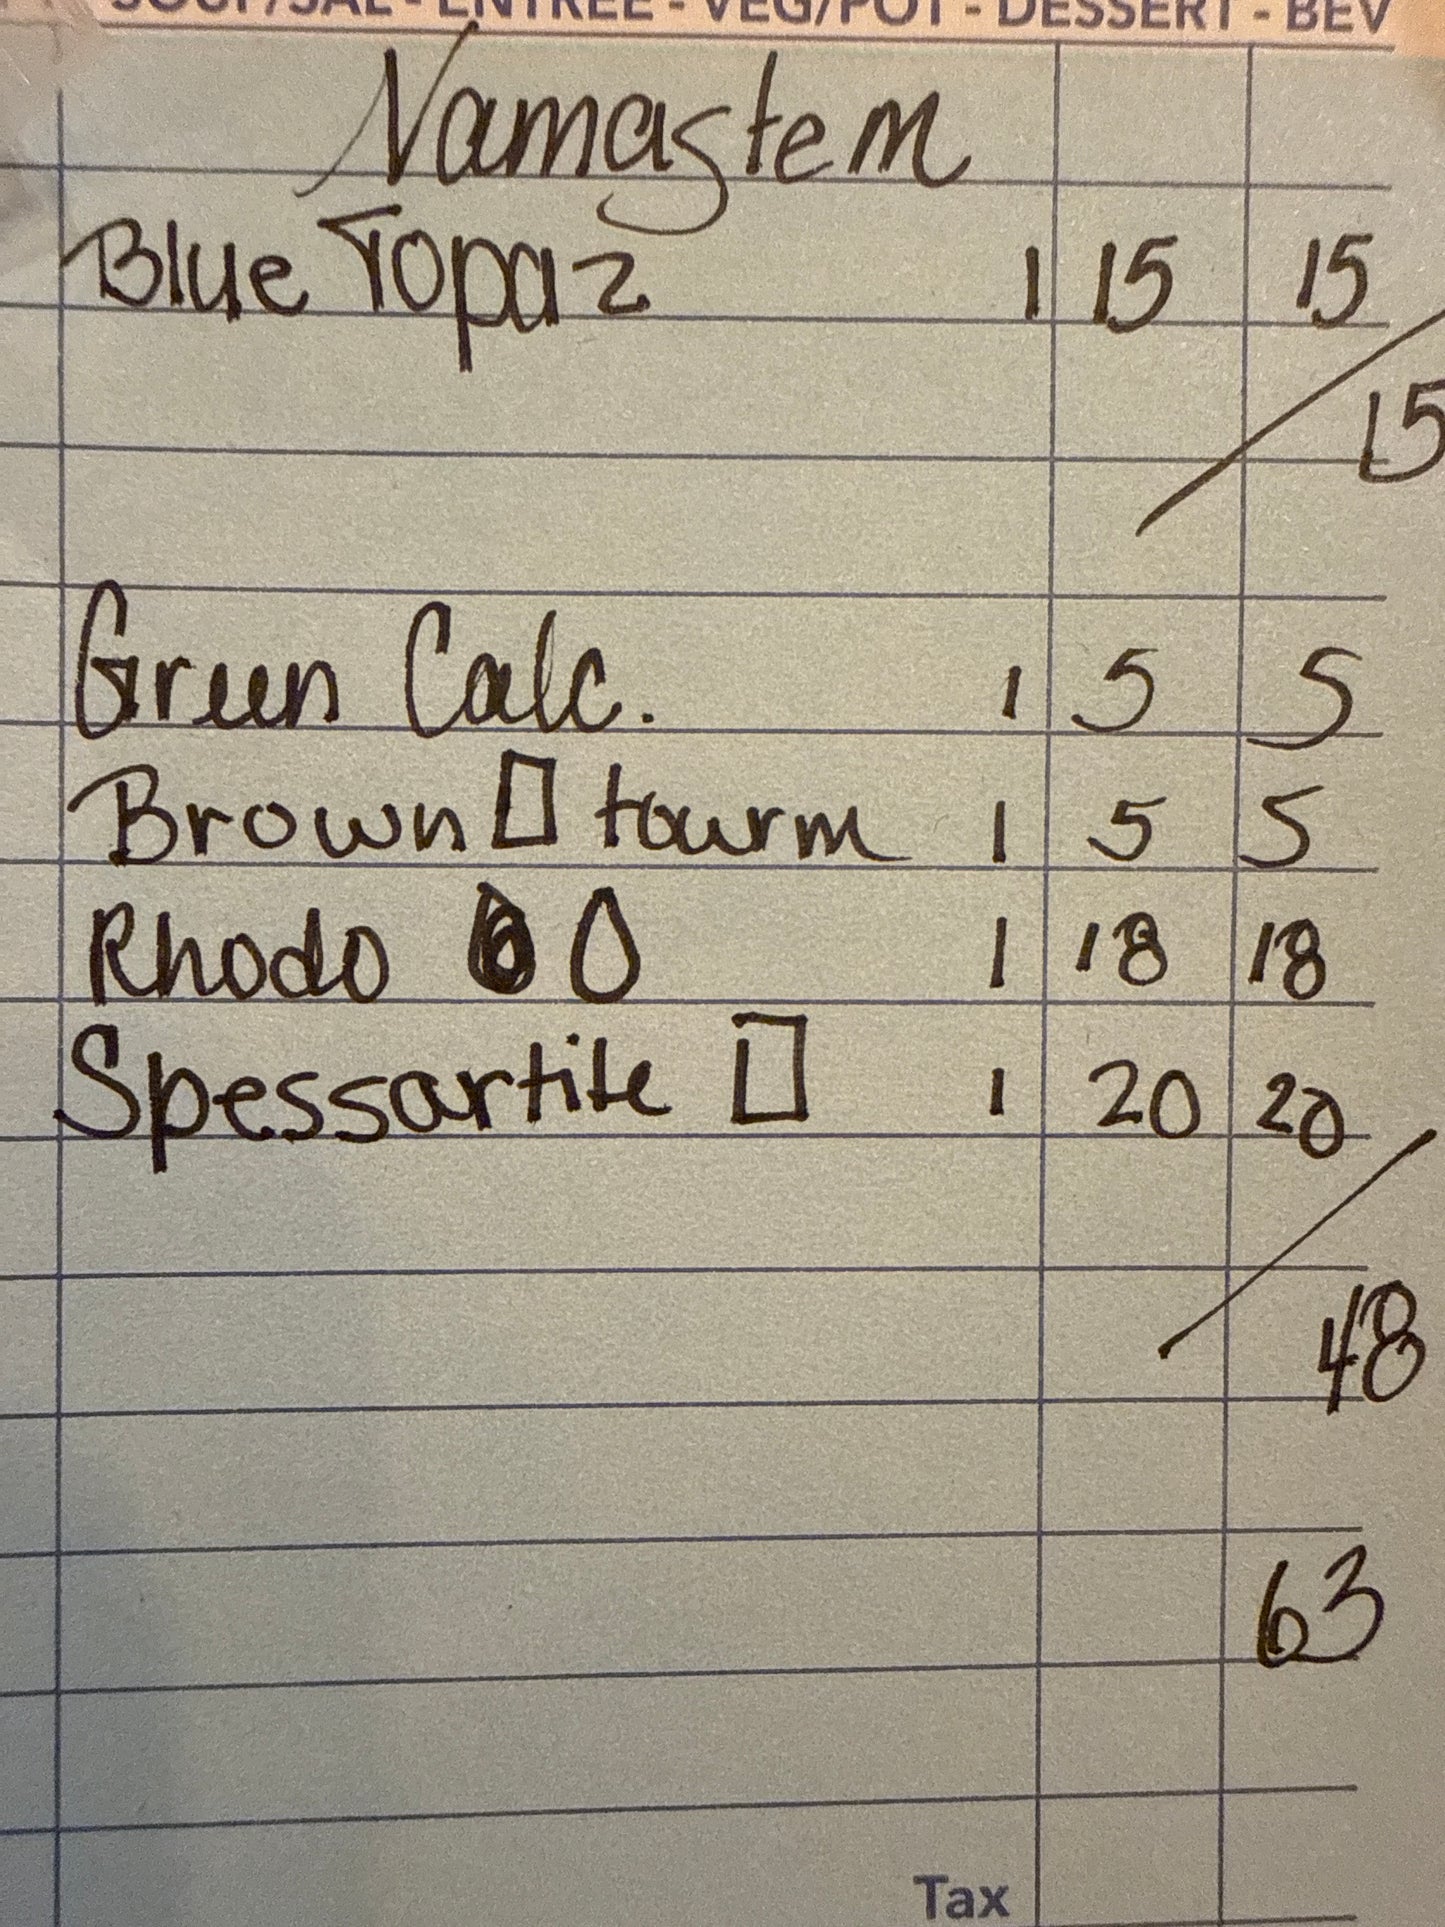 SOUP/SAL - ENTREE - VEG/POT - DESSERT - BEV
Namastem
Blue Topaz 1 15 15
15
Green Calc. 1 5 5
Brown tourm 1 5 5
Rhodo 1 18 18
Spessartite 1 20 20
48
63
Tax